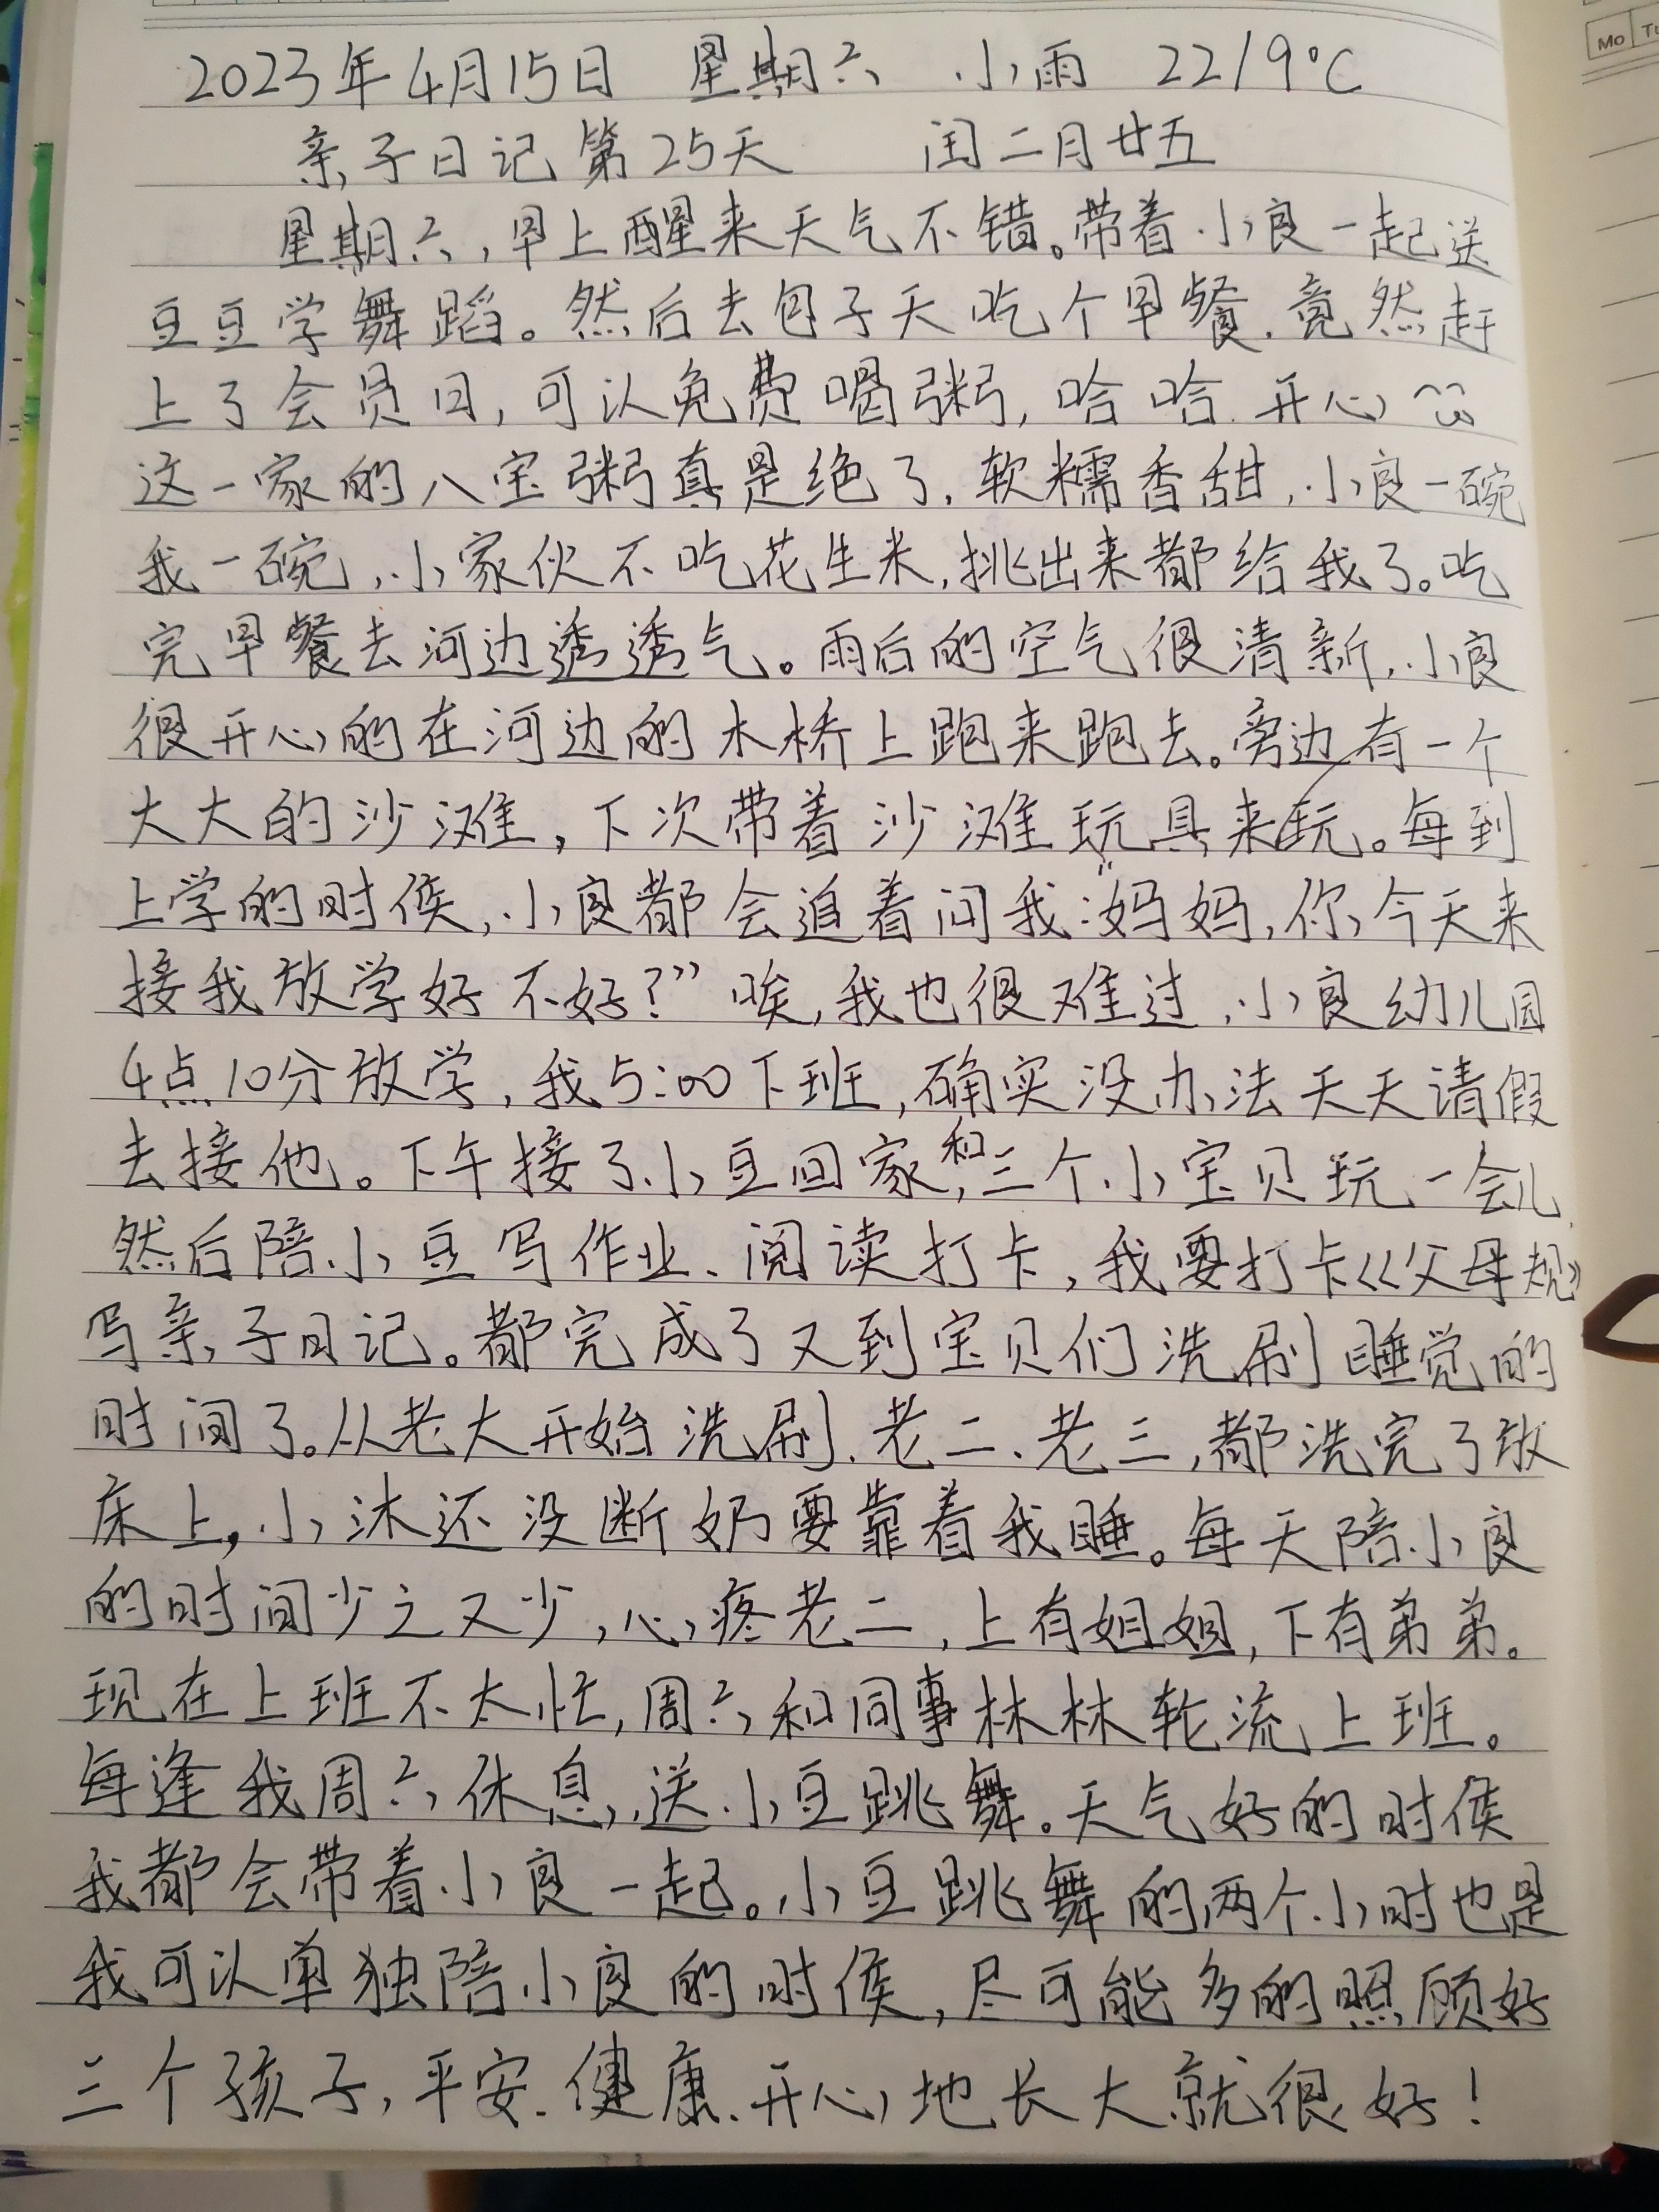 2023年4月15日 星期六 小雨 22/9℃
亲子日记第25天 闰二月廿五
星期六,早上醒来天气不错。带着小良一起送
豆豆学舞蹈。然后去包子天吃个早餐.竟然赶
上了会员日,可以免费喝粥,哈哈.开心
这一家的八宝粥真是绝了.软糯香甜,小良一碗
我一碗,小家伙不吃花生米,挑出来都给我了。吃
完早餐去河边透透气。雨后的空气很清新,小良
很开心的在河边的木桥上跑来跑去。旁边有一个
大大的沙滩,下次带着沙滩玩具来玩。每到
上学的时候,小良都会追着问我:“妈妈,你今天来
接我放学好不好?”唉,我也很难过,小良幼儿园
4点10分放学,我5:00下班,确实没办法天天请假
去接他。下午接了小豆回家,和三个小宝贝玩一会儿.
然后陪小豆写作业、阅读打卡,我要打卡《父母规》
写亲子日记。都完成了又到宝贝们洗刷睡觉的
时间了。从老大开始洗刷.老二、老三,都洗完了放
床上,小沐还没断奶要靠着我睡。每天陪小良
的时间少之又少,心疼老二,上有姐姐,下有弟弟。
现在上班不太忙,周六和同事林林轮流上班。
每逢我周六休息,送小豆跳舞。天气好的时候
我都会带着小良一起。小豆跳舞的两个小时也是
我可以单独陪小良的时候,尽可能多的照顾好
三个孩子,平安、健康、开心地长大就很好!
Mo Tu